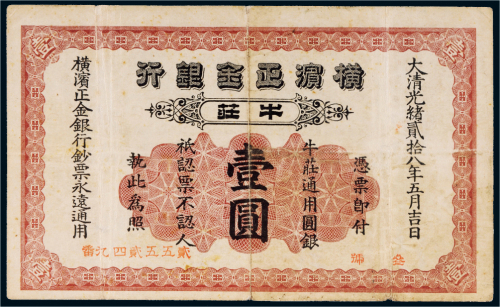 橫濱正金銀行
牛莊
大清光緒貳拾八年五月吉日
憑票即付
牛莊通用圓銀
壹圓
祇認票不認人
執此為照
橫濱正金銀行鈔票永遠通用
壹
壹
壹
壹